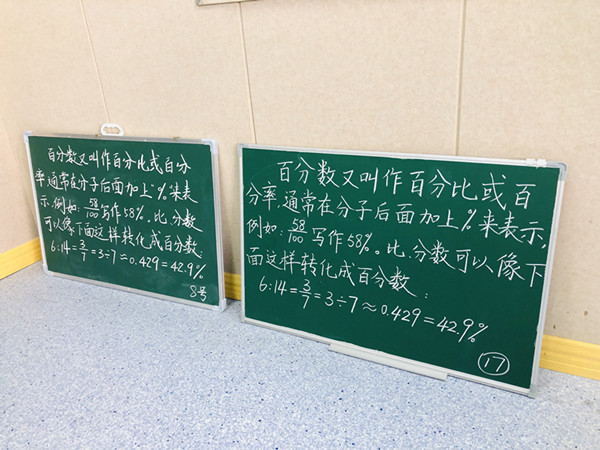 百分数又叫作百分比或百分
率,通常在分子后面加上%来表
示.例如:58/100写作58%.比、分数
可以像下面这样转化成百分数:
6:14=3/7=3÷7≈0.429=42.9%
8号
百分数又叫作百分比或百
分率,通常在分子后面加上%来表示,
例如:58/100写作58%。比、分数可以像下
面这样转化成百分数:
6:14=3/7=3÷7≈0.429=42.9%
17